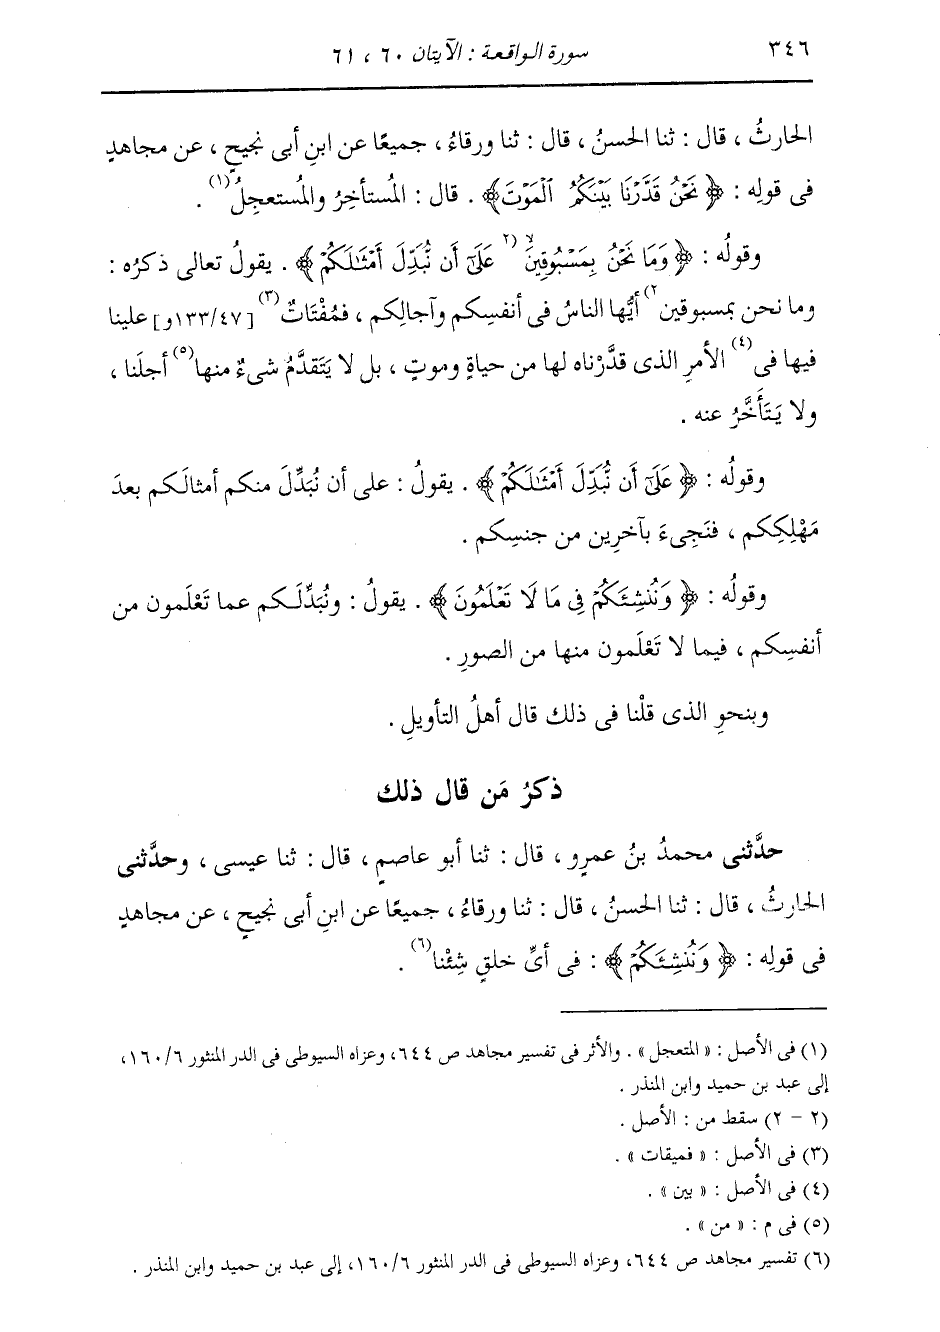 ٣٤٦
سورة الواقعة : الآيتان ٦٠ ، ٦١
الحارثُ ، قال : ثنا الحسنُ ، قال : ثنا ورقاءُ ، جميعًا عن ابنِ أبى نجيحٍ ، عن مجاهدٍ
فى قولِه : ﴿ نَحْنُ قَدَّرْنَا بَيْنَكُمُ الْمَوْتَ ﴾ . قال : المُستأخِرُ والمُستعجِلُ(١) .
وقولُه : ﴿ وَمَا نَحْنُ بِمَسْبُوقِينَ (٢ عَلَىٰٓ أَن نُّبَدِّلَ أَمْثَـٰلَكُمْ ﴾ . يقولُ تعالى ذكرُه :
وما نحن بمسبوقين ٢) أيُّها الناسُ فى أنفسِكم وآجالِكم ، فمُفْتَاتٌ(٣) [٤٧/١٣٣و] علينا
فيها فى(٤) الأمرِ الذى قدَّرْناه لها من حياةٍ وموتٍ ، بل لا يَتَقدَّمُ شىءٌ منها(٥) أجلَنا ،
ولا يَتَأَخَّرُ عنه .
وقولُه : ﴿ عَلَىٰٓ أَن نُّبَدِّلَ أَمْثَـٰلَكُمْ ﴾ . يقولُ : على أن نُبَدِّلَ منكم أمثالَكم بعدَ
مَهْلِكِكم ، فنَجِىءَ بآخرِين من جنسِكم .
وقولُه : ﴿ وَنُنشِئَكُمْ فِى مَا لَا تَعْلَمُونَ ﴾ . يقولُ : ونُبَدِّلَكم عما تَعْلَمون من
أنفسِكم ، فيما لا تَعْلَمون منها من الصورِ .
وبنحوِ الذى قلْنا فى ذلك قال أهلُ التأويلِ .
ذكرُ مَن قال ذلك
حدَّثنى محمدُ بنُ عمرٍو ، قال : ثنا أبو عاصمٍ ، قال : ثنا عيسى ، وحدَّثنى
الحارثُ ، قال : ثنا الحسنُ ، قال : ثنا ورقاءُ ، جميعًا عن ابنِ أبى نجيحٍ ، عن مجاهدٍ
فى قولِه : ﴿ وَنُنشِئَكُمْ ﴾ : فى أىِّ خلقٍ شِئْنا(٦) .
(١) فى الأصل : « المتعجل » . والأثر فى تفسير مجاهد ص ٦٤٤، وعزاه السيوطى فى الدر المنثور ١٦٠/٦،
إلى عبد بن حميد وابن المنذر .
(٢ - ٢) سقط من : الأصل .
(٣) فى الأصل : « فميقات » .
(٤) فى الأصل : « بين » .
(٥) فى م : « من » .
(٦) تفسير مجاهد ص ٦٤٤، وعزاه السيوطى فى الدر المنثور ١٦٠/٦، إلى عبد بن حميد وابن المنذر .